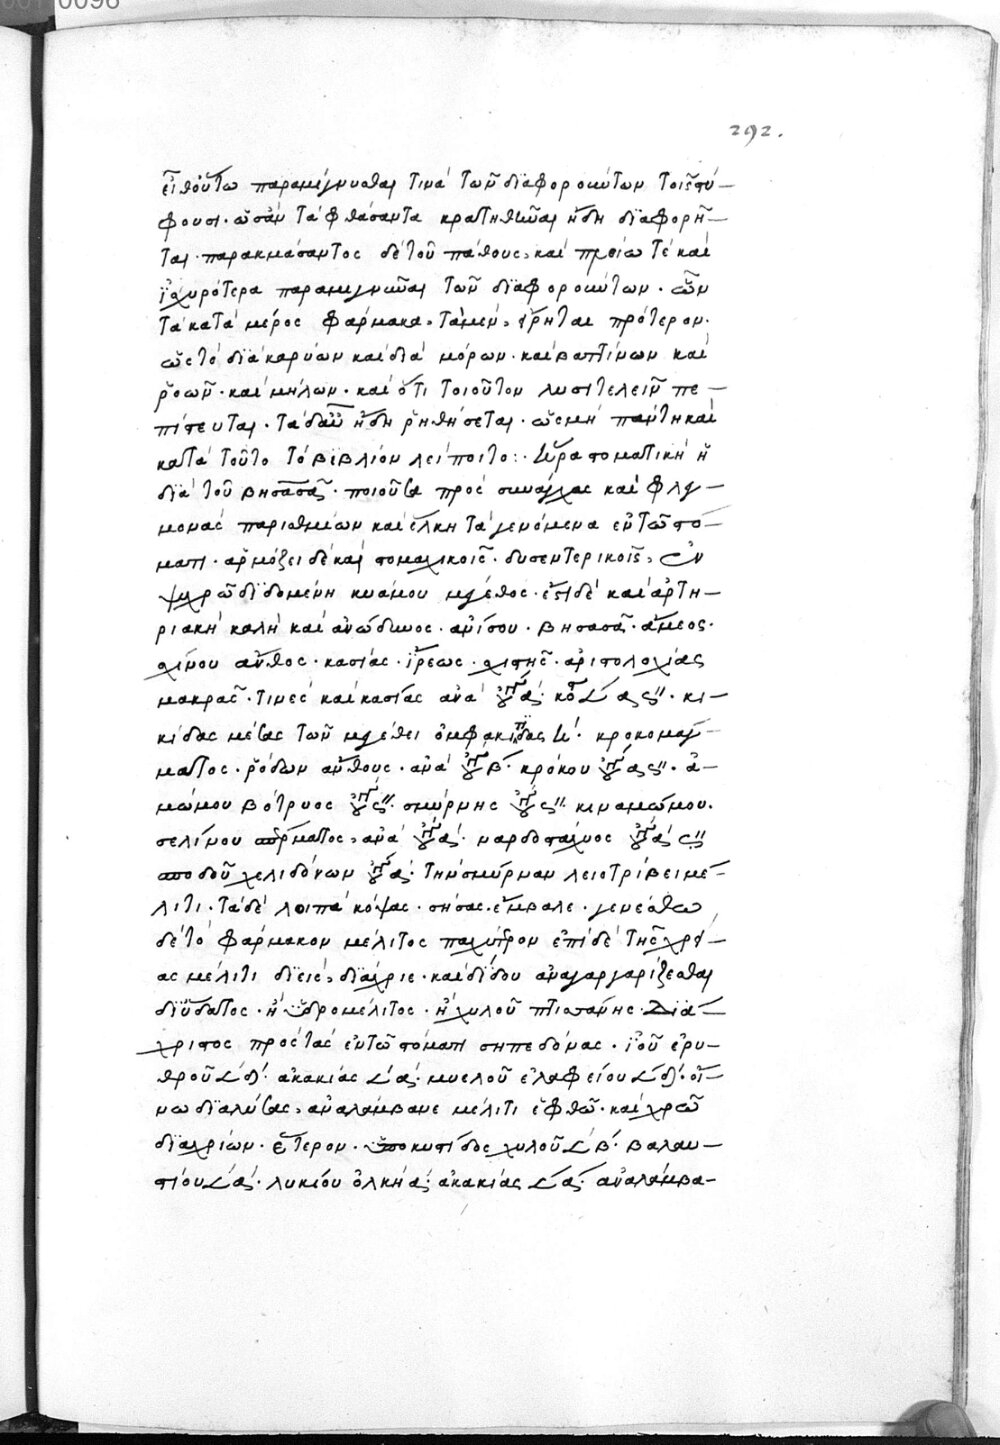 292.
εἶθ' οὕτω παραμίγνυσθαι τινὰ τῶν διαφορούντων τοῖς στύ-
φουσι· ὡς ἂν τὰ φθάσαντα κρατηθῆναι ἤδη διαφορῆ-
ται· παρακμάσαντος δὲ τοῦ πάθους, καὶ πλείω τὲ καὶ
ἰσχυρότερα παραμιγνῦναι τῶν διαφορούντων· ὧν
τὰ κατὰ μέρος φάρμακα, τὰ μὲν, εἴρηται πρότερον·
ὡς τὸ διὰ καρύων καὶ διὰ μόρων· καὶ βατίνων καὶ
ῥοῶν· καὶ μήλων· καὶ ὅτι τοιοῦτον λυσιτελεῖν πε-
πίστευται· τὰ δ' αὖ ἤδη ῥηθήσεται· ὡς μὴ πάντη καὶ
κατὰ τοῦτο τὸ βιβλίον λείποιτο:· στοματικὴ ἡ
διὰ τοῦ βησασᾶ· ποιοῦσα πρὸς συνάγχας καὶ φλεγ-
μονὰς παρισθμίων καὶ ἕλκη τὰ γενόμενα ἐν τῷ στό-
ματι· ἁρμόζει δὲ καὶ στομαχικοῖς· δυσεντερικοῖς, σὺν
ψυχρῷ διδομένη κυάμου μέγεθος· ἔστι δὲ καὶ ἀρτη-
ριακὴ καλὴ καὶ ἀνώδυνος· ἀνίσου· βησασᾶ· ἄμεος·
σχίνου ἄνθος· κασίας· ἴρεως· ἀριστολοχίας
μακρᾶς· τινὲς καὶ κασίας ἀνὰ α· κι-
κίδας μέσας τῶν μεγέθει ὀμφακίτιδας· κροκομάγ-
ματος· ῥόδων ἄνθους· ἀνὰ β· κρόκου · ἀ-
μώμου βότρυος · σμύρνης · κιναμώμου·
σελίνου σπέρματος, ἀνὰ α· ναρδοστάχυος α
σποδοῦ χελιδόνων α· τὴν σμύρναν λειοτρίβει μέ-
λιτι· τὰ δὲ λοιπὰ κόψας· σήσας· ἔμβαλε· γενέσθω
δὲ τὸ φάρμακον μέλιτος παχύτερον ἐπὶ δὲ τῆς χρεί-
ας μέλιτι διεὶς, διάχριε· καὶ δίδου ἀναγαργαρίζεσθαι
δι' ὕδατος· ἢ ὑδρομέλιτος· ἢ χυλοῦ πτισσάνης· Διά-
χριστος πρὸς τὰς ἐν τῷ στόματι σηπεδόνας· ἰοῦ ἐρυ-
θροῦ ∠ δ· ἀκακίας ∠ α· μυελοῦ ἐλαφείου ∠ δ· οἴ-
νῳ διαλύσας, ἀναλάμβανε μέλιτι ἑφθῷ· καὶ χρῶ
διαχρίων· ἕτερον· ὑποκυστίδος χυλοῦ ∠ β· βαλαυ-
στίου ∠ α· λυκίου ὁλκὴ α· ἀκακίας ∠ α· ἀναλάμβα-